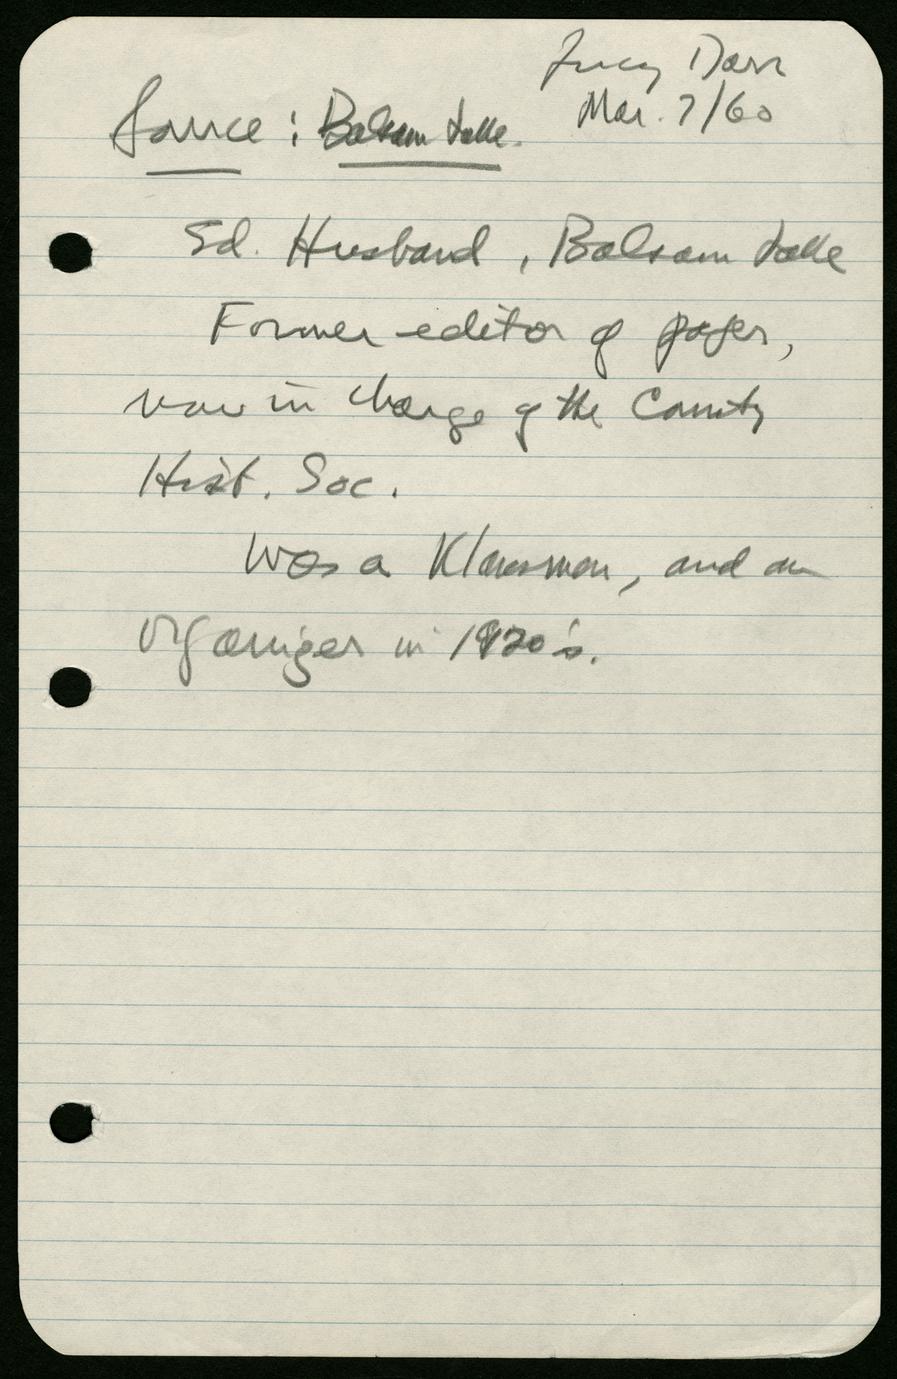 Lucy Darr
Mar. 7/60
Source: Balsam Lake.
Ed. Husband, Balsam Lake
Former editor of paper,
now in charge of the County
Hist. Soc.
Was a Klansman, and an
organizer in 1920's.